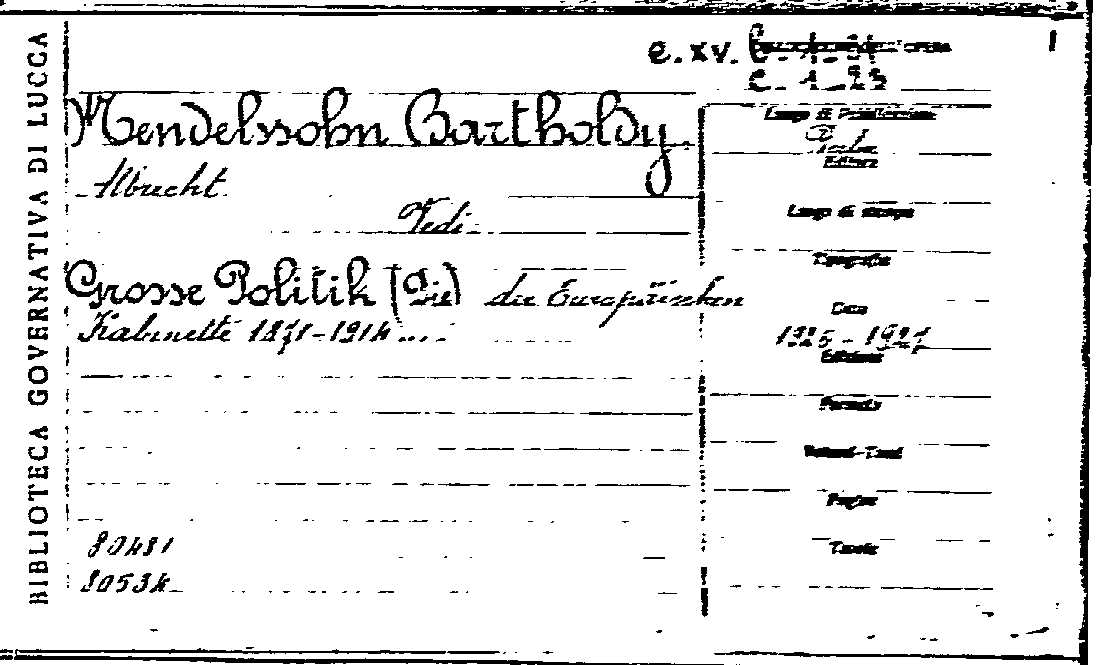 BIBLIOTECA GOVERNATIVA DI LUCCA
e.xv.
Mendelssohn Bartholdy
Luogo di Pubblicazione
Albrecht
Editore
Vedi
Luogo di stampa
Tipografia
Grosse Politik (Die) die Europäischen
Data
Kabinette 1871-1914....
1925-1927
Edizione
Formato
Volumi-Tomi
Pagine
80481
Tavole
80534